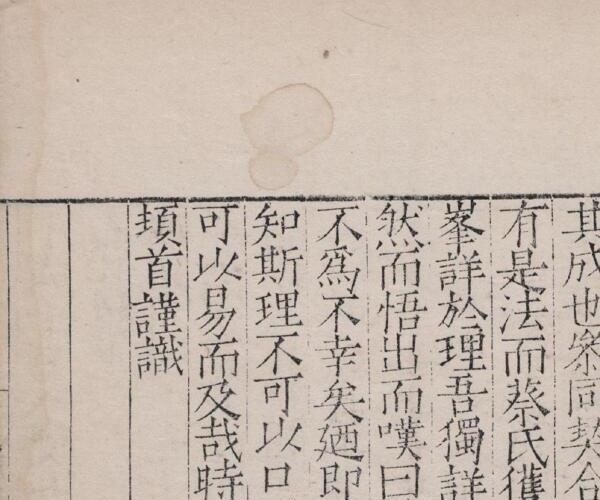 其成也叅同契合
有是法而蔡氏獲
峯詳於理吾獨詳
然而悟出而嘆曰
不爲不幸矣廼即
知斯理不可以口
可以易而及哉時
頓首謹識